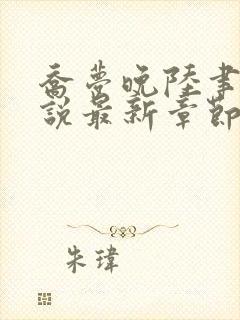 喬夢晚陸書
說最新章節
朱瑋